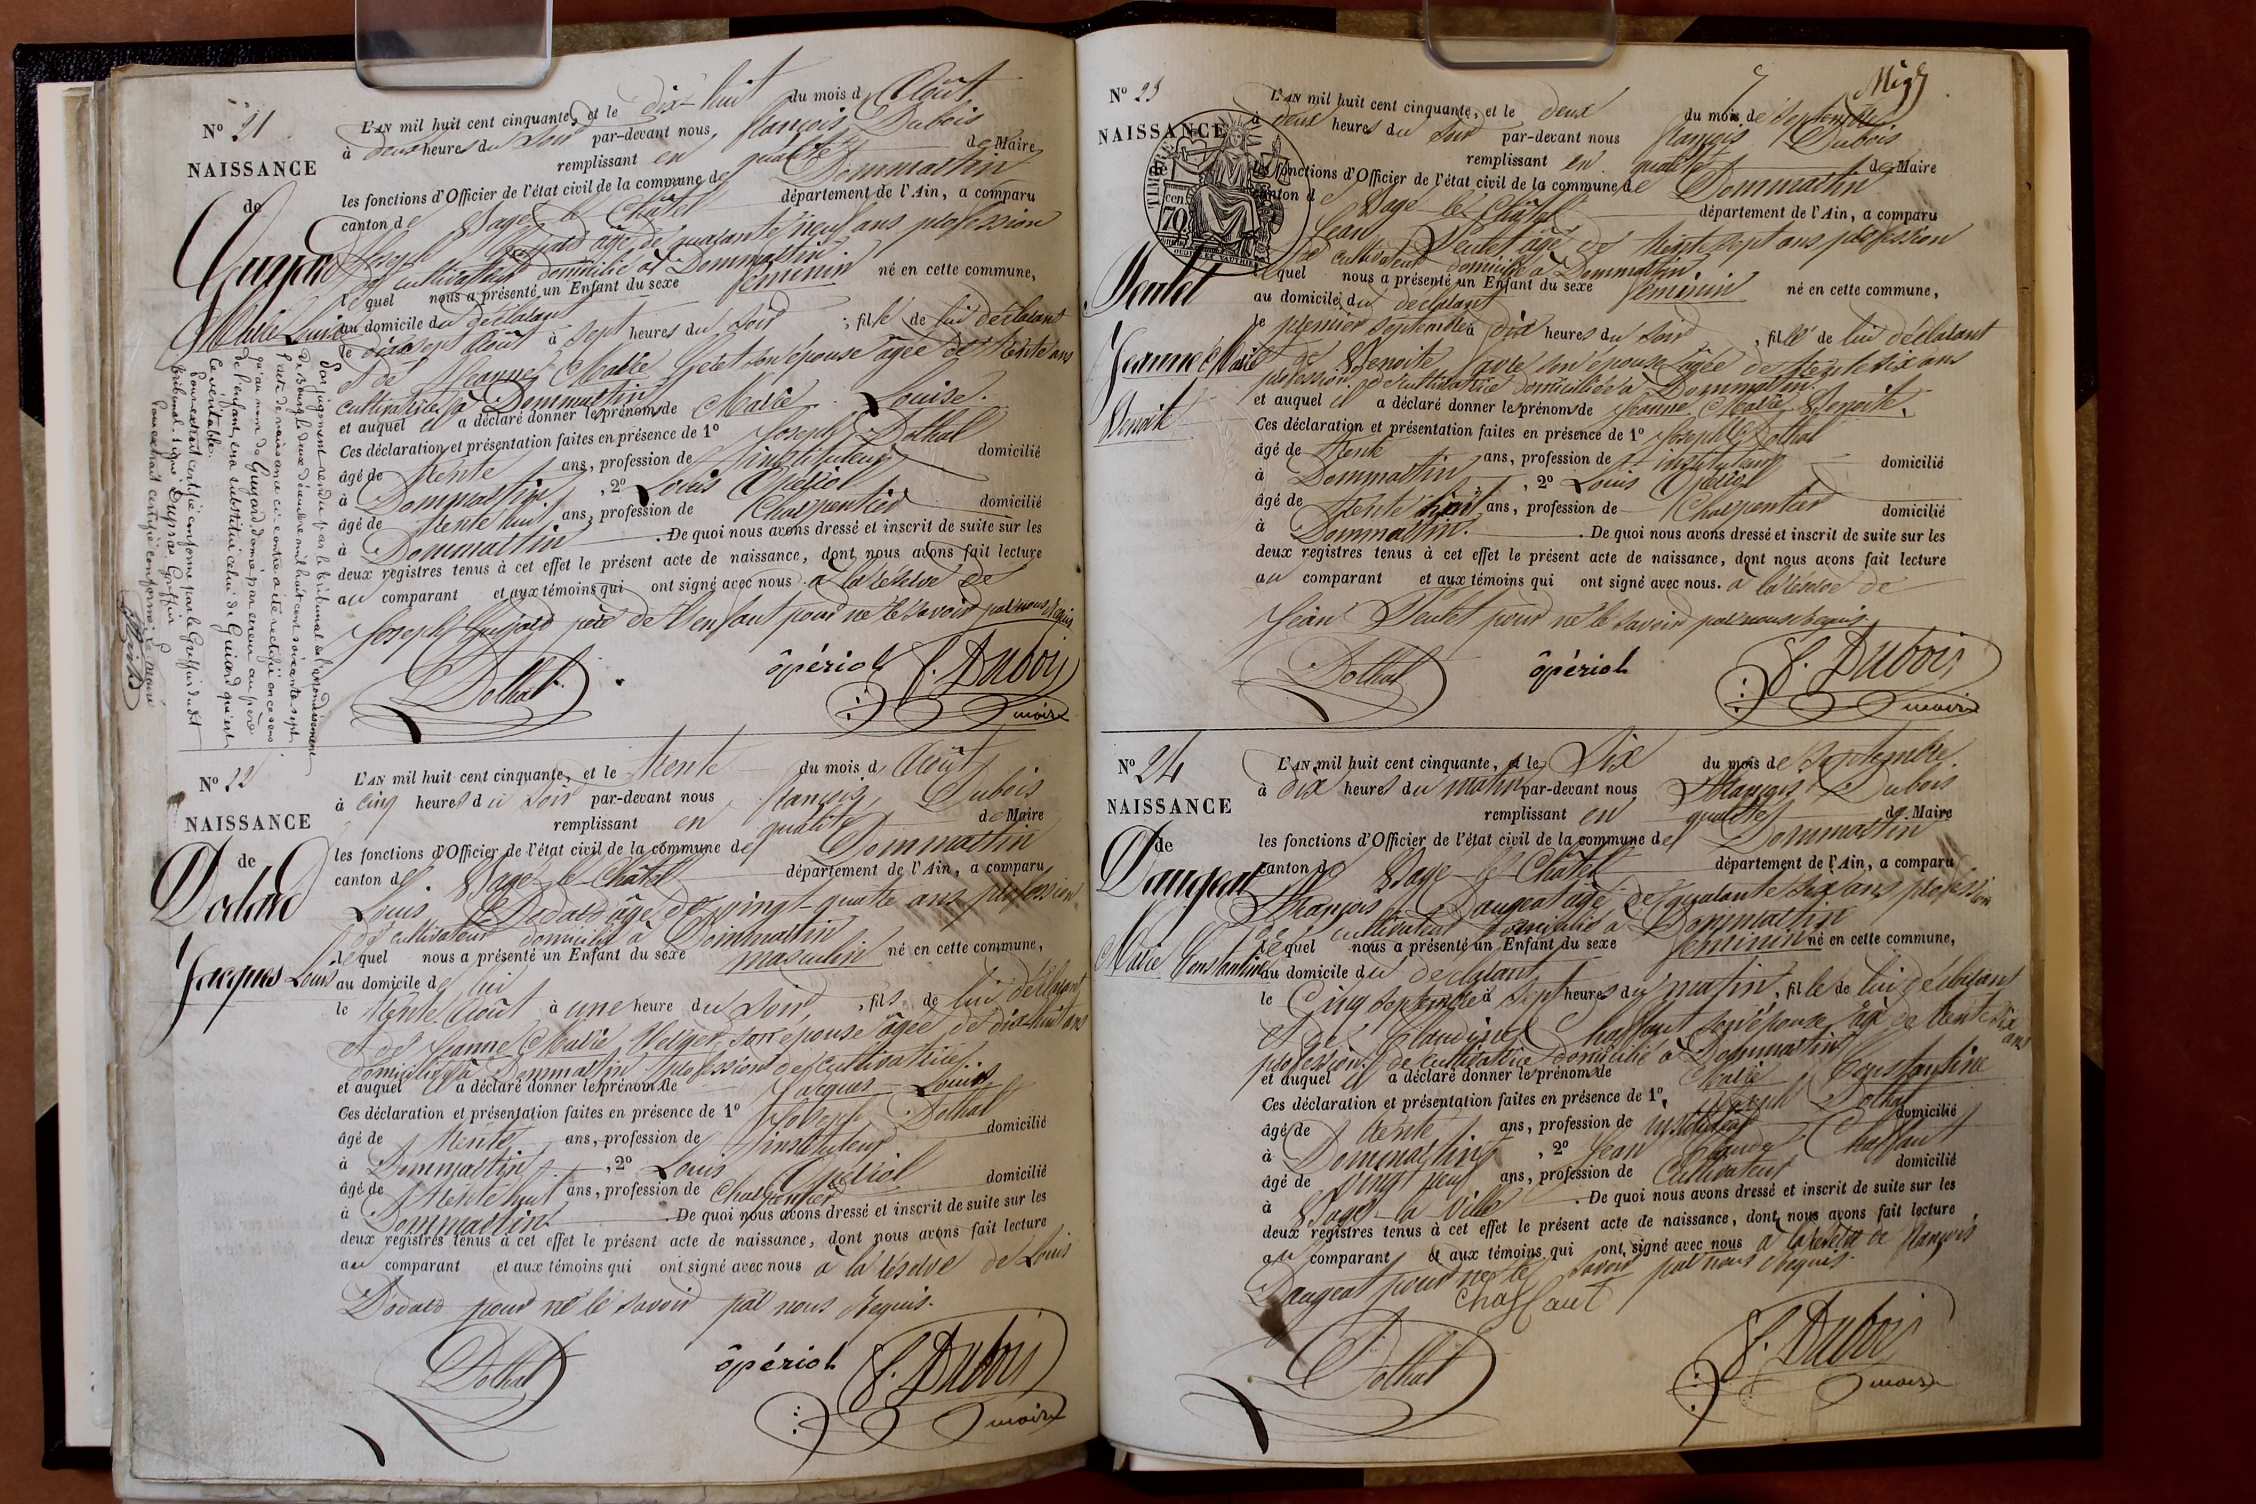 N° 21
NAISSANCE
de
Gujard
Marie Louise
L'AN mil huit cent cinquante, et le dix-huit du mois d'Août
à deux heures du soir par-devant nous, françois Dubois
remplissant en qualité de Maire
les fonctions d'Officier de l'état civil de la commune de Dommartin
canton de Bagé-le-Châtel département de l'Ain, a comparu
Joseph Gujard âgé de quarante neuf ans profession
de cultivateur domicilié à Dommartin
lequel nous a présenté un Enfant du sexe féminin né en cette commune,
au domicile du déclarant
le dix sept Août à sept heures du soir, fille de lui déclarant
et de Jeanne Marie son épouse âgée de trente ans
cultivatrice à Dommartin
et auquel il a déclaré donner les prénoms de Marie Louise.
Ces déclaration et présentation faites en présence de 1° Joseph Dothal
âgé de trente ans, profession de instituteur domicilié
à Dommartin, 2° Louis Opériol
âgé de trente huit ans, profession de Charpentier domicilié
à Dommartin. De quoi nous avons dressé et inscrit de suite sur les
deux registres tenus à cet effet le présent acte de naissance, dont nous avons fait lecture
au comparant et aux témoins qui ont signé avec nous à la réserve de
Joseph Gujard père de l'enfant pour ne le savoir par nous requis
Dothal ôpériol f. Dubois
maire
Par jugement rendu par le tribunal de l'arrondissement
de Bourg le deux décembre mil huit cent soixante sept
l'acte de naissance ci-contre a été rectifié en ce sens
qu'au nom de Gujard, donné par erreur au père
de l'enfant, sera substitué celui de Guiard qui est
le véritable.
Pour extrait certifié conforme par le Greffier dudt
tribunal. Signé Dupras Greffier
Pour extrait certifié conforme
N° 22
NAISSANCE
de
Dodard
Jacques Louis
L'AN mil huit cent cinquante, et le trente du mois d'Août
à cinq heures du soir par-devant nous françois Dubois
remplissant en qualité de Maire
les fonctions d'Officier de l'état civil de la commune de Dommartin
canton de Bagé-le-Châtel département de l'Ain, a comparu
Louis Dodard âgé de vingt-quatre ans profession
de cultivateur domicilié à Dommartin
lequel nous a présenté un Enfant du sexe masculin né en cette commune,
au domicile de lui
le trente Août à une heure du soir, fils de lui déclarant
et de Jeanne Marie Velger son épouse âgée de dix-huit ans
domiciliée à Dommartin profession de cultivatrice.
et auquel il a déclaré donner les prénoms de Jacques Louis
Ces déclaration et présentation faites en présence de 1° Joseph Dothal
âgé de trente ans, profession de instituteur domicilié
à Dommartin, 2° Louis Opériol
âgé de trente huit ans, profession de Charpentier domicilié
à Dommartin. De quoi nous avons dressé et inscrit de suite sur les
deux registres tenus à cet effet le présent acte de naissance, dont nous avons fait lecture
au comparant et aux témoins qui ont signé avec nous à la réserve de Louis
Dodard pour ne le savoir par nous requis.
Dothal ôpériol f. Dubois
maire
N° 23
NAISSANCE
TIMBRE
70 cen.
Jeanne Marie
Benoite
L'AN mil huit cent cinquante, et le deux du mois de Septembre
à deux heures du soir par-devant nous françois Dubois
remplissant en qualité de Maire
les fonctions d'Officier de l'état civil de la commune de Dommartin
canton de Bagé-le-Châtel département de l'Ain, a comparu
Jean âgé de trente sept ans profession
de cultivateur domicilié à Dommartin
lequel nous a présenté un Enfant du sexe féminin né en cette commune,
au domicile du déclarant
le premier septembre à dix heures du soir, fille de lui déclarant
et de Benoite son épouse âgée de trente six ans
profession de cultivatrice domiciliée à Dommartin.
et auquel il a déclaré donner les prénoms de Jeanne Marie Benoite.
Ces déclaration et présentation faites en présence de 1° Joseph Dothal
âgé de trente ans, profession de instituteur domicilié
à Dommartin, 2° Louis Opériol
âgé de trente huit ans, profession de Charpentier domicilié
à Dommartin. De quoi nous avons dressé et inscrit de suite sur les
deux registres tenus à cet effet le présent acte de naissance, dont nous avons fait lecture
au comparant et aux témoins qui ont signé avec nous. à la réserve de
Jean pour ne le savoir par nous requis
Dothal ôpériol f. Dubois
maire
N° 24
NAISSANCE
de
Daugeat
Marie Constantine
L'AN mil huit cent cinquante, et le Six du mois de Septembre.
à dix heures du matin par-devant nous françois Dubois
remplissant en qualité de Maire
les fonctions d'Officier de l'état civil de la commune de Dommartin
canton de Bagé-le-Châtel département de l'Ain, a comparu
François Daugeat âgé de quarante six ans profession
de cultivateur domicilié à Dommartin
lequel nous a présenté un Enfant du sexe féminin né en cette commune,
au domicile du déclarant
le Cinq septembre à sept heures du matin, fille de lui déclarant
et de Claudine Chaffaut son épouse âgée de trente six ans
profession de cultivatrice domicilié à Dommartin
et auquel il a déclaré donner les prénoms de Marie Constantine
Ces déclaration et présentation faites en présence de 1° Joseph Dothal
âgé de trente ans, profession de instituteur domicilié
à Dommartin, 2° Jean Claude Chaffaut
âgé de vingt neuf ans, profession de Cultivateur domicilié
à Bagé-la-Ville. De quoi nous avons dressé et inscrit de suite sur les
deux registres tenus à cet effet le présent acte de naissance, dont nous avons fait lecture
au comparant & aux témoins qui ont signé avec nous à la réserve de françois
Daugeat pour ne le savoir par nous requis.
Chaffaut
Dothal f. Dubois
maire